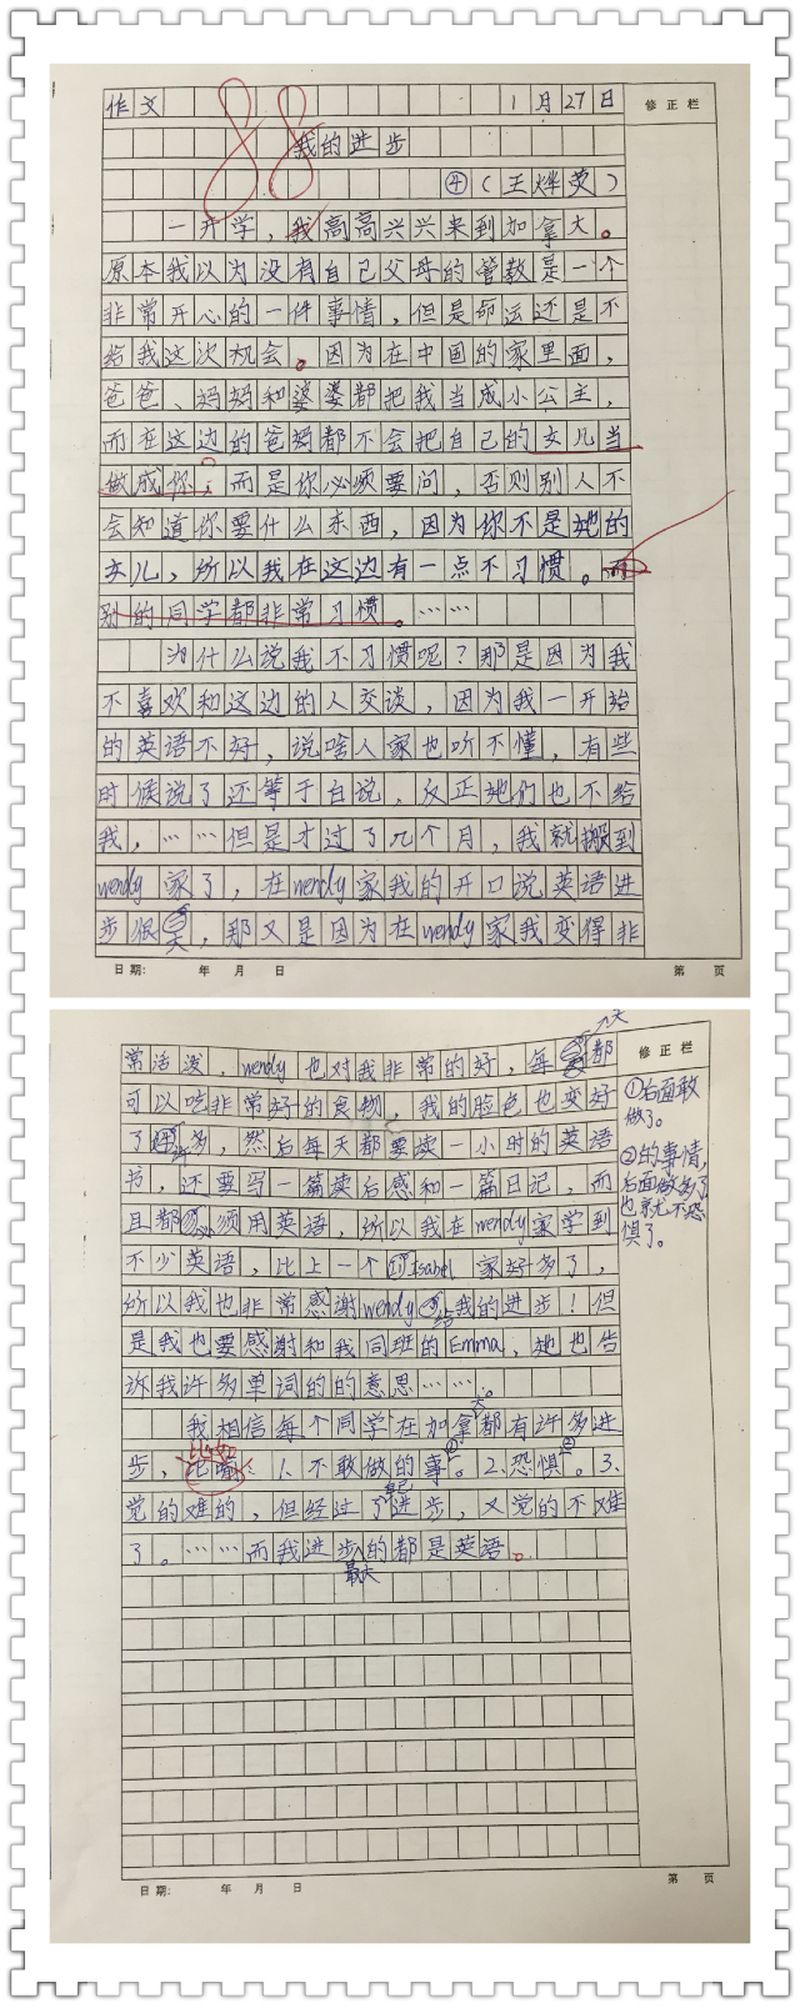 作文 1月27日 修正栏
88
我的进步
④(王烨荧)
一开学,我高高兴兴来到加拿大。
原本我以为没有自己父母的管教是一个
非常开心的一件事情,但是命运还是不
给我这次机会。因为在中国的家里面,
爸爸、妈妈和婆婆都把我当成小公主,
而在这边的爸妈都不会把自己的女儿当
做成你,而是你必须要问,否则别人不
会知道你要什么东西,因为你不是她的
女儿,所以我在这边有一点不习惯。而
别的同学都非常习惯。……
为什么说我不习惯呢?那是因为我
不喜欢和这边的人交谈,因为我一开始
的英语不好,说啥人家也听不懂,有些
时候说了还等于白说,反正她们也不给
我,……但是才过了几个月,我就搬到
wendy家了,在wendy家我的开口说英语进
步很大,那又是因为在wendy家我变得非
日期: 年 月 日 第 页
常活泼,wendy也对我非常的好,每天都 修正栏
可以吃非常好的食物,我的脸色也变好
了许多,然后每天都要读一小时的英语
书,还要写一篇读后感和一篇日记,而
且都必须用英语,所以我在wendy家学到
不少英语,比上一个Isabel家好多了,
所以我也非常感谢wendy给我的进步!但
是我也要感谢和我同班的Emma,她也告
诉我许多单词的的意思……。
我相信每个同学在加拿大都有许多进
步,比如:1.不敢做的事①。2.恐惧②。3.
觉的难的,但经过了自己进步,又觉的不难
了。……而我进步最大的都是英语。
①后面敢
做了。
②的事情,
后面做多了
也就不恐
惧了。
日期: 年 月 日 第 页